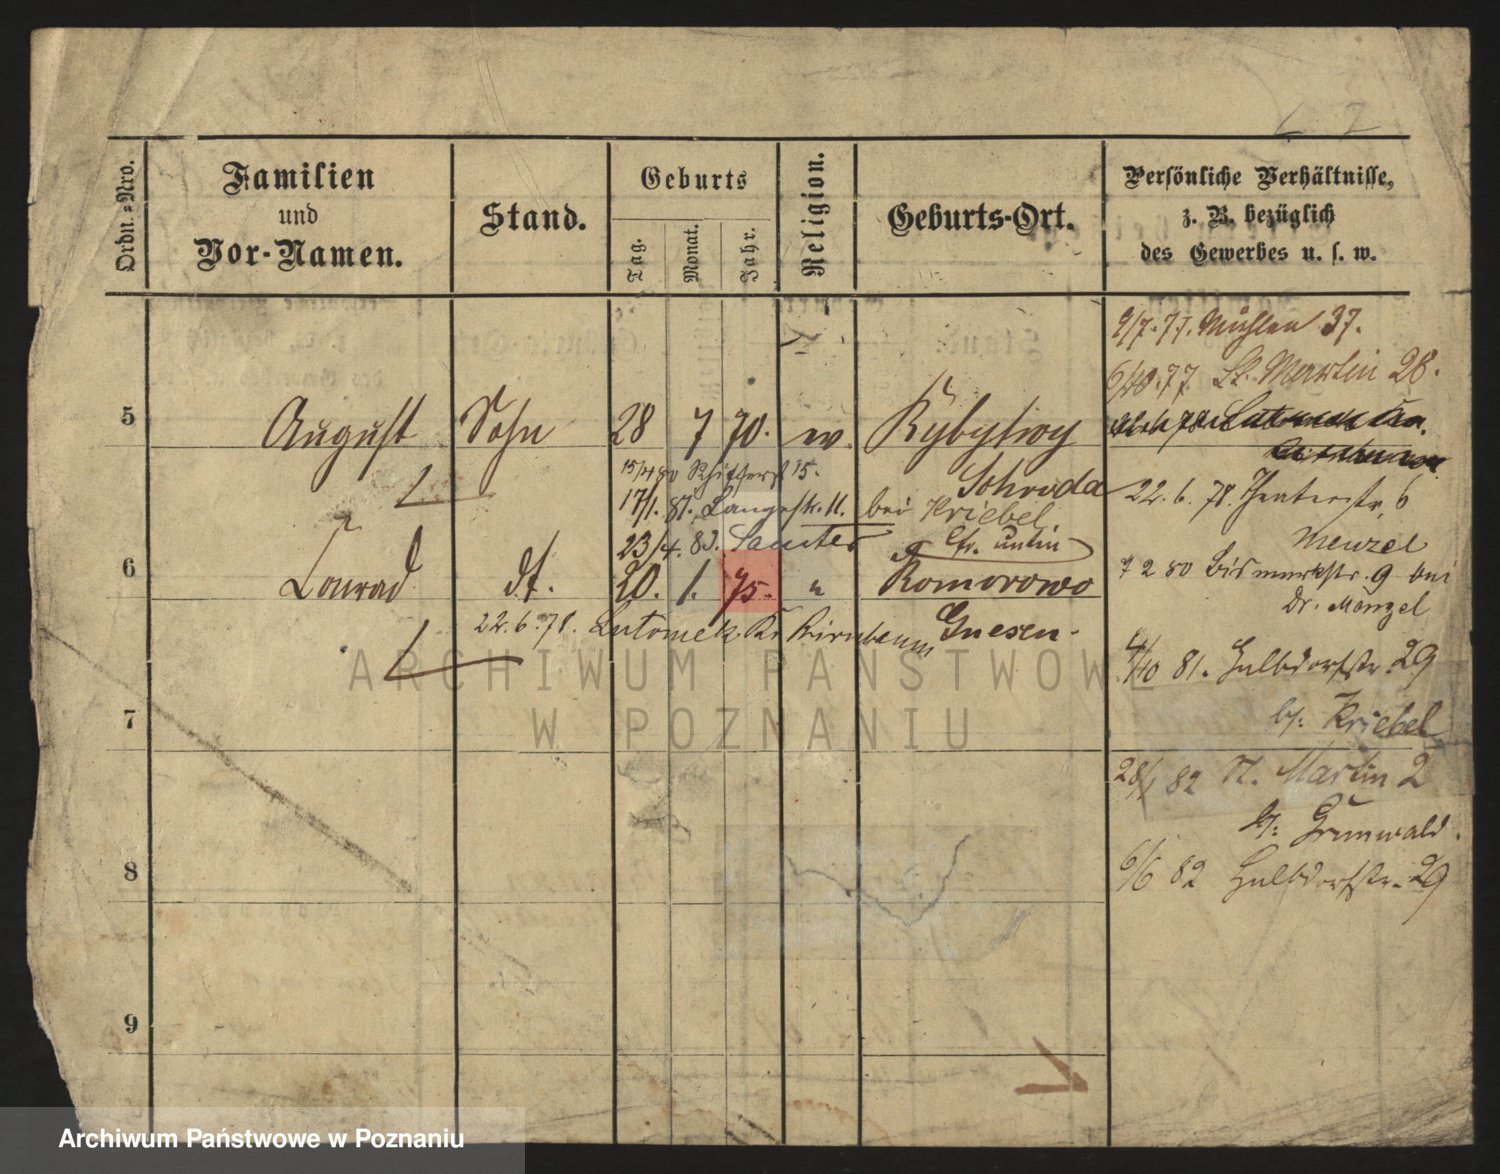 Ordn.=Nro.
Familien
und
Vor-Namen.
Stand.
Geburts
Tag.
Monat.
Jahr.
Religion.
Geburts-Ort.
Persönliche Verhältnisse,
z. B. bezüglich
des Gewerbes u. s. w.
9/7.77. Mühlen 37.
77 St. Martin 28.
5 August Sohn 28 7 70. ev.
15/4 80 15.
17/1. 81. Langestr. 11. bei Kriebel
Schroda
22. 6. 78. Theaterstr. 6
Menzel
23/4. 83.
6 Conrad dt. 20. 1. 75. " Komorowo
7 2 80 Bismarckstr. 9 bei
Dr. Menzel
22. 6. 78. Lutomek Kr Birnbaum Gnesen.
/10 81. Halbdorfstr. 29
bei Kriebel
7
28/ 82 St. Martin 2
b/: Grunwald.
8
6/6 82 Halbdorfstr. 29
9
ARCHIWUM PAŃSTWOWE
W POZNANIU
Archiwum Państwowe w Poznaniu